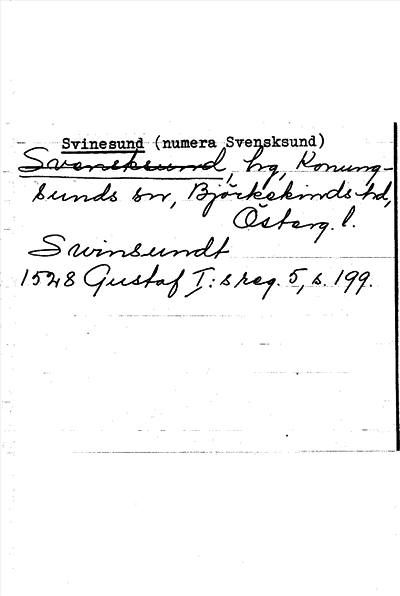 Svinesund (numera Svensksund)
Svensksund, hg, Konung-
sunds sn, Björkekinds hd,
Österg. l.
Swinsundt
1528 Gustaf I:s reg. 5, s. 199.